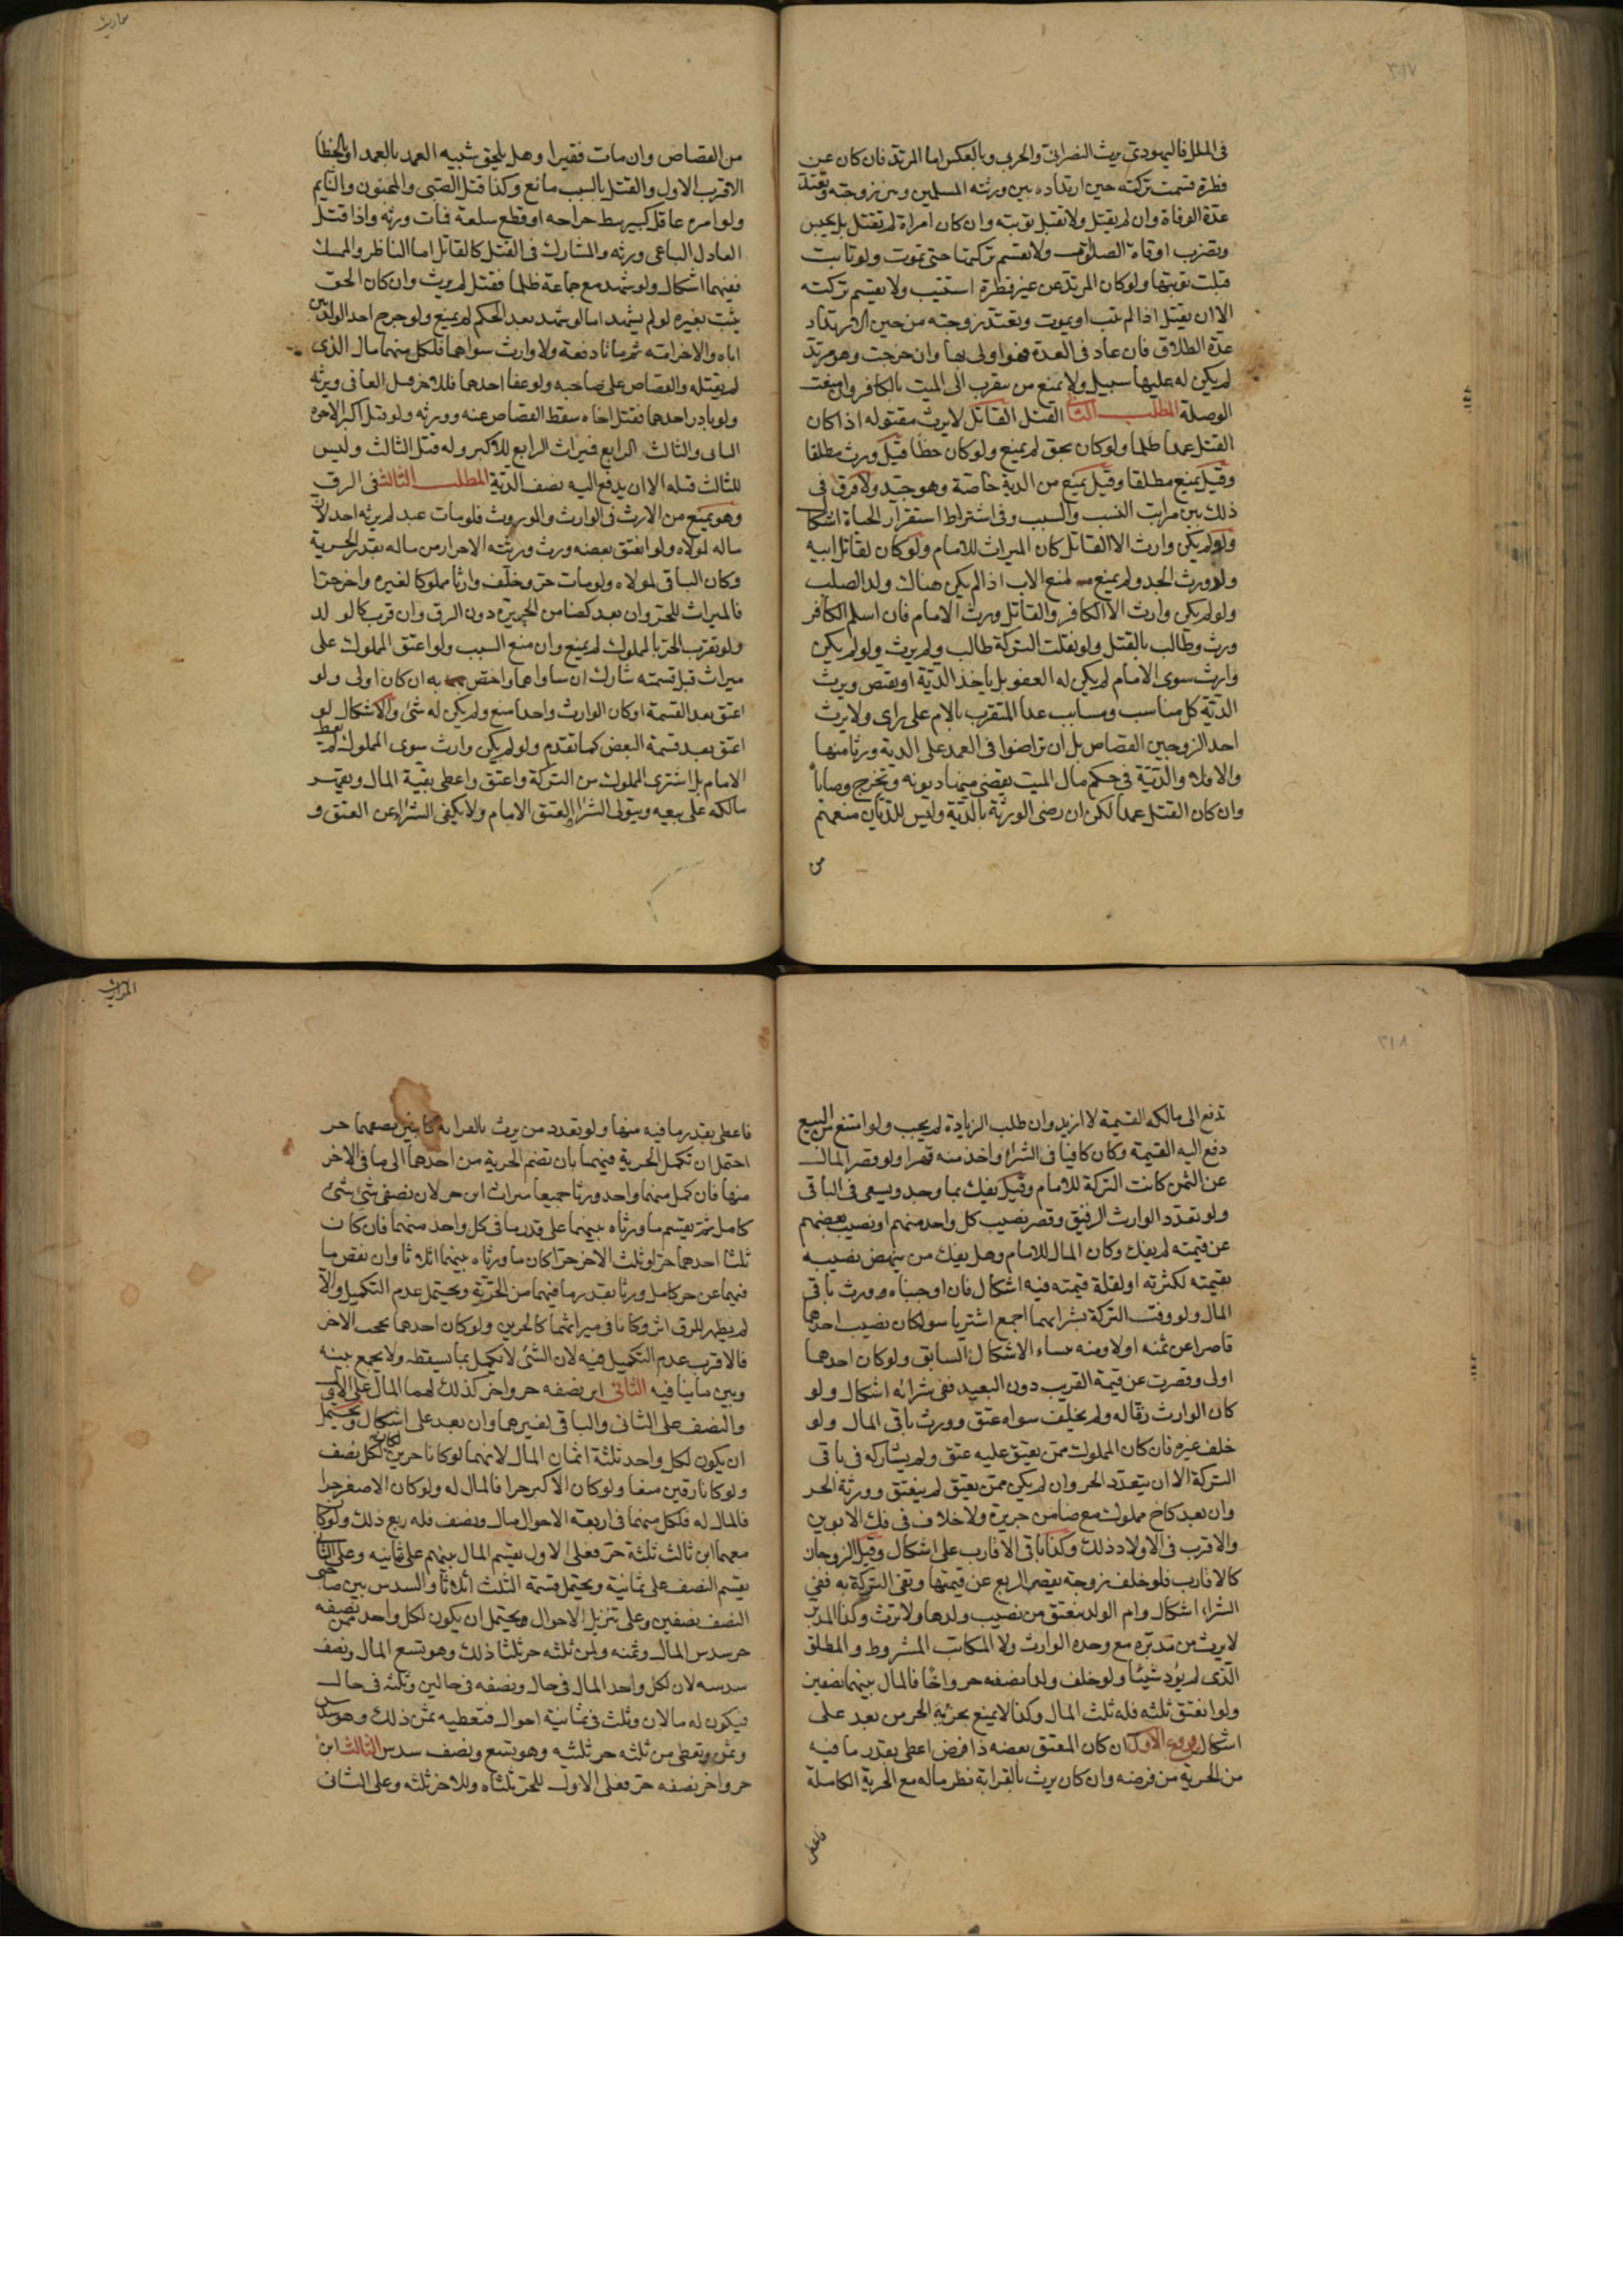 ٣١٧
فى الملل فاليهودي يرث النصرانى والحربى وبالعكس اما المرتد فان كان عن
فطرة قسمت تركته حين ارتداده بين ورثته المسلمين وتبين زوجته وتعتد
عدة الوفاة وان لم يقتل ولا تقبل توبته وان كان امراة لم تقتل بل تحبس
وتضرب اوقات الصلوات ولا تقسم تركتها حتى تموت ولو تابت
قبلت توبتها ولو كان المرتد عن غير فطرة استتيب ولا يقسم تركته
الا ان يقتل اذا لم يتب او يموت وتعتد زوجته من حين الارتداد
عدة الطلاق فان عاد فى العدة فهو اولى بها وان خرجت وهو مرتد
لم يكن له عليها سبيل ولا يمنع من يتقرب الى الميت بالكافر وان منعت
الوصلة المطلب الثانى القتل القاتل لا يرث مقتوله اذا كان
القتل عمدا ظلما ولو كان بحق لم يمنع ولو كان خطأ قيل ورث مطلقا
وقيل يمنع مطلقا وقيل يمنع من الدية خاصة وهو جيد ولا فرق فى
ذلك بين مراتب النسب والسبب وفى اشتراط استقرار الحياة اشكال
ولو لم يكن وارث الا القاتل كان الميراث للامام ولو كان لقاتل ابيه
ولد ورث الجد ولم يمنع بمنع الاب اذا لم يكن هناك ولد الصلب
ولو لم يكن وارث الا الكافر والقاتل ورث الامام فان اسلم الكافر
ورث وطالب بالقتل ولو نقلت التركة طالب ولم يرث ولو لم يكن
وارث سوى الامام لم يكن له العفو بل ياخذ الدية او يقتص ويرث
الدية كل مناسب ومسابب عدا المتقرب بالام على راى ولا يرث
احد الزوجين القصاص بل ان تراضوا فى العمد على الدية ورثا منها
والا فلا والدية فى حكم مال الميت يقضى منها ديونه وتخرج وصاياه
وان كان القتل عمدا لكن ان رضى الورثة بالدية وليس للديان منعهم
من
من القصاص وان مات فقيرا وهل يلحق شبيه العمد بالعمد او بالخطأ
الاقرب الاول والقتل بالسبب مانع وكذا قتل الصبى والمجنون والنايم
ولو امره عاقل كبير ببط جراحه او قطع سلعة فمات ورثه واذا قتل
العادل الباغى ورثه والمشارك فى القتل كالقاتل اما الناظر والممسك
ففيهما اشكال ولو شهد مع جماعة ظلما فقتل لم يرث وان كان الحق
يثبت بغيره لو لم يشهد اما لو شهد بعد الحكم لم يمنع ولو جرح احد الولدين
اباه والاخر امه ثم ماتا دفعة ولا وارث سواهما فلكل منهما مال الذى
لم يقتله والقصاص على صاحبه ولو عفا احدهما فللاخر قتل العافى ويرثه
ولو بادر احدهما فقتل اخاه سقط القصاص عنه وورثه ولو قتل اكبر الاخوة
الثانى والثالث الرابع فميراث الرابع للاكبر وله قتل الثالث وليس
للثالث قتله الا ان يدفع اليه نصف الدية المطلب الثالث فى الرق
وهو يمنع من الارث فى الوارث والموروث فلو مات عبد لم يرثه احد لان
ماله لمولاه ولو انعتق بعضه ورث ورثته الاحرار من ماله بقدر الحرية
وكان الباقى لمولاه ولو مات حر وخلف وارثا مملوكا لغيره واخر حرا
فالميراث للحر وان بعد كضامن الجريرة دون الرق وان قرب كالولد
ولو تقرب الحر بالمملوك لم يمنع وان منع السبب ولو اعتق المملوك على
ميراث قبل قسمته شارك ان ساواهم واختص به ان كان اولى ولو
اعتق بعد القسمة او كان الوارث واحدا منع ولم يكن له شئ والاشكال لو
اعتق بعد قسمة البعض كما تقدم ولو لم يكن وارث سوى المملوك لم يعط
الامام بل اشترى المملوك من التركة واعتق واعطى بقية المال ويقهر
مالكه على بيعه ويتولى الشراء والعتق الامام ولا يكفى الشراء عن العتق و
المواريث
٣١٨
تدفع الى مالكه القيمة لا ازيد وان طلب الزيادة لم يجب ولو امتنع من البيع
دفع اليه القيمة وكان كافيا فى الشراء واخذ منه قهرا ولو قصر المال
عن الثمن كانت التركة للامام وقيل يفك بما وجد ويسعى فى الباقى
ولو تعدد الوارث الرقيق وقصر نصيب كل واحد منهم او نصيب بعضهم
عن قيمته لم يفك وكان المال للامام وهل يفك من ينهض نصيبه
بقيمته لكثرته او لقلة قيمته فيه اشكال فان اوجبناه ورث باقى
المال ولو وفت التركة بشرائهما اجمع اشتريا سوا كان نصيب احدهما
قاصرا عن ثمنه اولا ومنه ينشاء الاشكال السابق ولو كان احدهما
اولى وقصرت عن قيمة القريب دون البعيد ففى شرائه اشكال ولو
كان الوارث رقا له ولم يخلف سواه عتق وورث باقى المال ولو
خلف غيره فان كان المملوك ممن يعتق عليه عتق ولم يشاركه فى باقى
التركة الا ان يتعدد الحر وان لم يكن ممن يعتق لم ينعتق وورثه الحر
وان بعد كاخ مملوك مع ضامن جريرة ولا خلاف فى فك الابوين
والاقرب فى الاولاد ذلك وكذا باقى الاقارب على اشكال وقيل الزوجان
كالاقارب فلو خلف زوجة يقصر الربع عن قيمتها وتفى التركة به ففى
الشراء اشكال وام الولد تنعتق من نصيب ولدها ولا ترث وكذا المدبر
لا يرث من مدبره مع وحده الوارث ولا المكاتب المشروط والمطلق
الذى لم يؤد شيئا ولو خلف ولدا نصفه حر واخا فالمال بينهما نصفين
ولو انعتق ثلثه فله ثلث المال وكذا لا يمنع بجزئه الحر من بعد على
اشكال فروع الاول ان كان المعتق بعضه ذا فرض اعطى بقدر ما فيه
من الحرية من فرضه وان كان يرث بالقرابة نظر ماله مع الحرية الكاملة
فاعطى
فاعطى بقدر ما فيه منها ولو تعدد من يرث بالقرابة كابنين نصفهما حر
احتمل ان تكمل الحرية فيهما بان تضم الحرية من احدهما الى ما فى الاخر
منها فان كمل منهما واحد ورثا جميعا ميراث ابن حر لان نصفى شئ شئ
كامل ثم يقسم ما ورثاه بينهما على قدر ما فى كل واحد منهما فان كان
ثلثا احدهما حرا وثلث الاخر حرا كان ما ورثاه بينهما اثلاثا وان نقص ما
فيهما عن حر كامل ورثا بقدر ما فيهما من الحرية ويحتمل عدم التكميل والا
لم يظهر للرق اثر وكانا فى ميراثهما كالحرين ولو كان احدهما يحجب الاخر
فالاقرب عدم التكميل فيه لان الشئ لا يكمل بما يسقطه ولا يجمع بينه
وبين ما ينافيه الثانى ابن نصفه حر واخر كذلك لهما المال على الاول
والنصف على الثانى والباقى لغيرهما وان بعد على اشكال ويحتمل
ان يكون لكل واحد ثلثة اثمان المال لانهما لو كانا حرين لكان لكل نصف
ولو كانا رقين منعا ولو كان الاكبر حرا فالمال له ولو كان الاصغر حرا
فالمال له فلكل منهما فى اربعة الاحوال مال ونصف فله ربع ذلك ولو كان
معهما ابن ثالث ثلثه حر فعلى الاول يقسم المال بينهم على ثمانية وعلى الثانى
يقسم النصف على ثمانية ويحتمل قسمة الثلث اثلاثا والسدس بين صاحبى
النصف نصفين وعلى تنزيل الاحوال ويحتمل ان يكون لكل واحد ممن نصفه
حر سدس المال وثمنه ولمن ثلثه حر ثلثا ذلك وهو تسع المال ونصف
سدسه لان لكل واحد المال فى حال ونصفه فى حالين وثلثه فى حال
فيكون له مالان وثلث فى ثمانية احوال فنعطيه ثمن ذلك وهو سدس
وثمن ويعطى من ثلثه حر ثلثيه وهو تسع ونصف سدس الثالث ابن
حر واخر نصفه حر فعلى الاول للحر ثلثاه وللاخر ثلثه وعلى الثانى